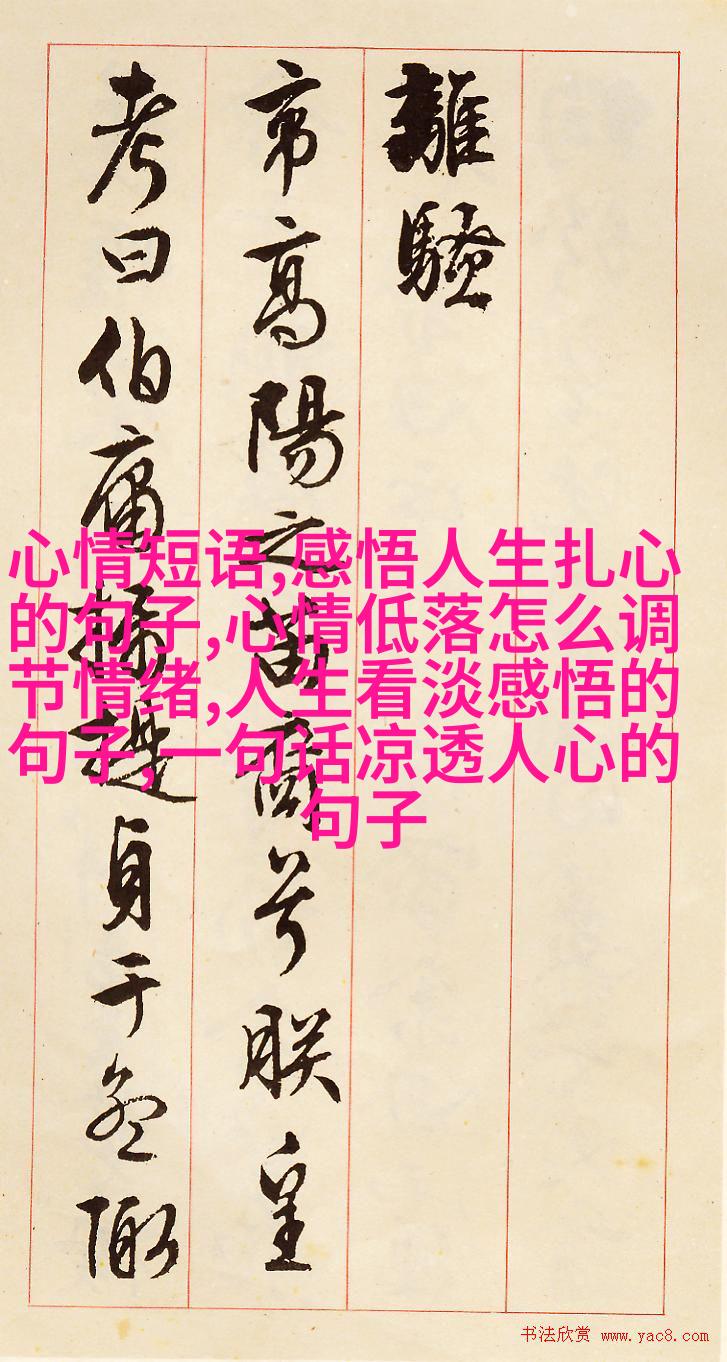 離騷
帝高陽之苗裔兮朕皇
考曰伯庸攝提貞于孟陬
心情短语,感悟人生扎心
的句子,心情低落怎么调
节情绪,人生看淡感悟的
句子,一句话凉透人心的
句子
书法欣赏 www.yac8.com